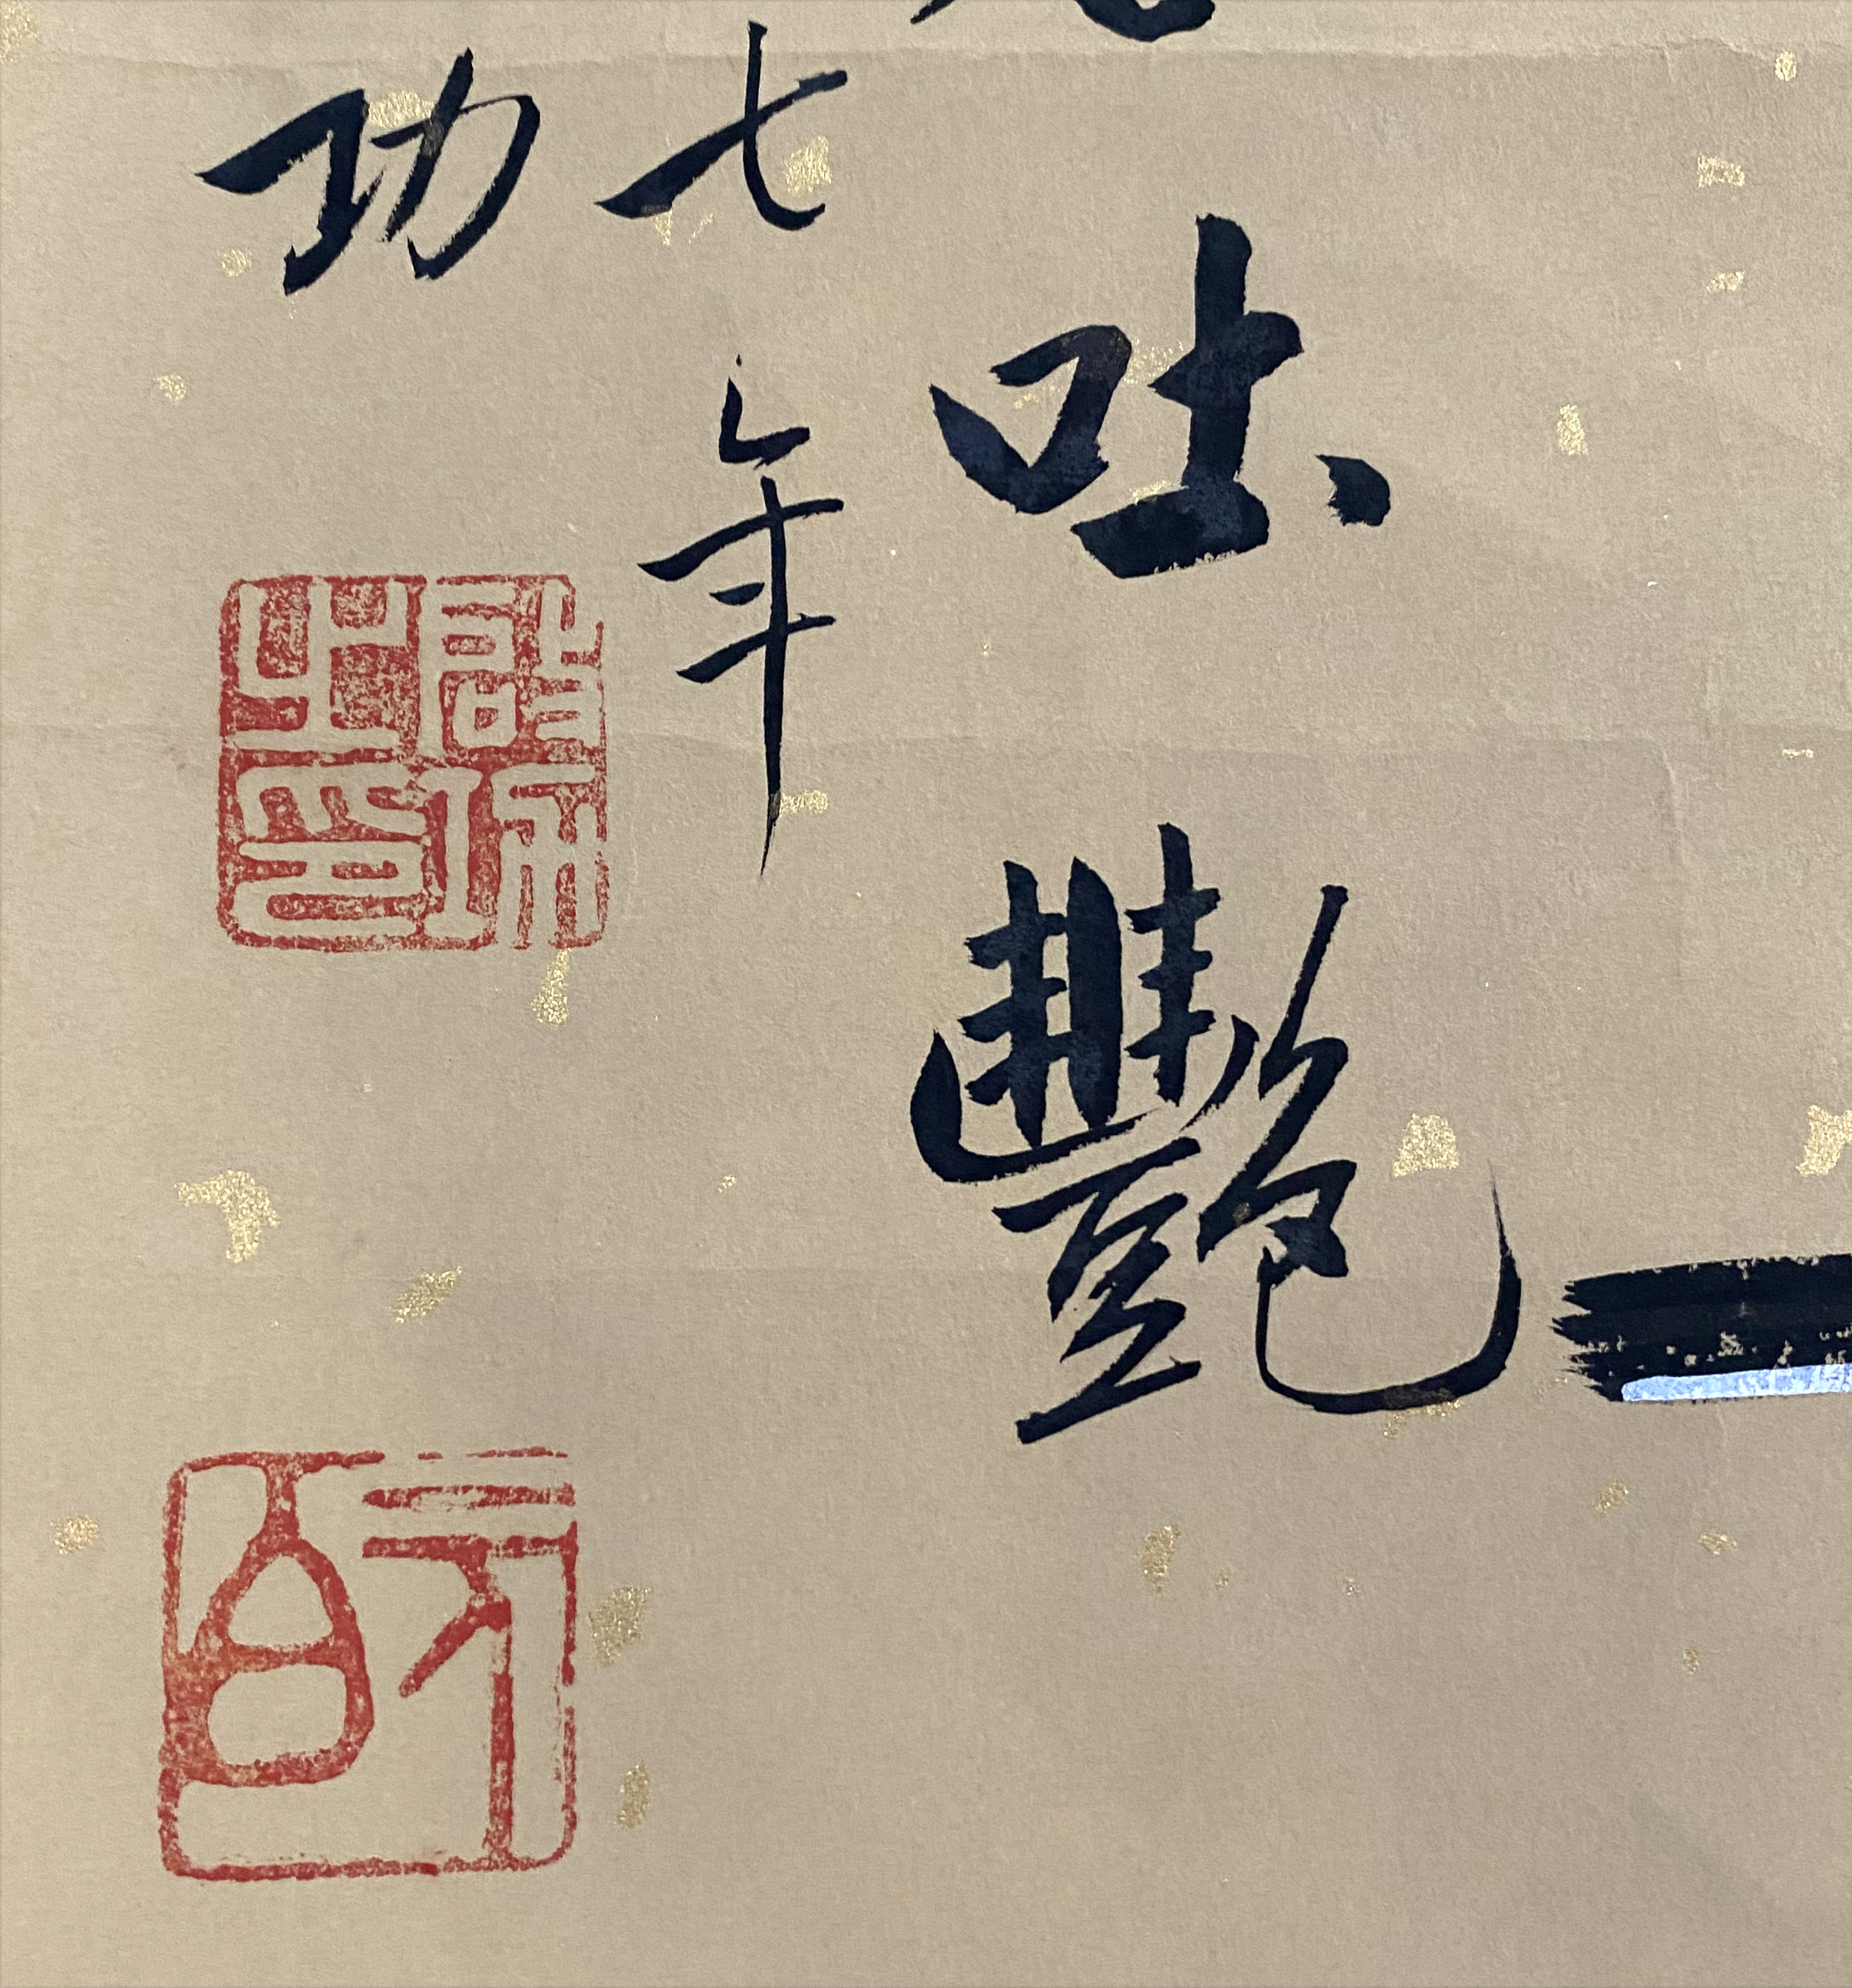 吐艷
七年
功
啟功之印
元白